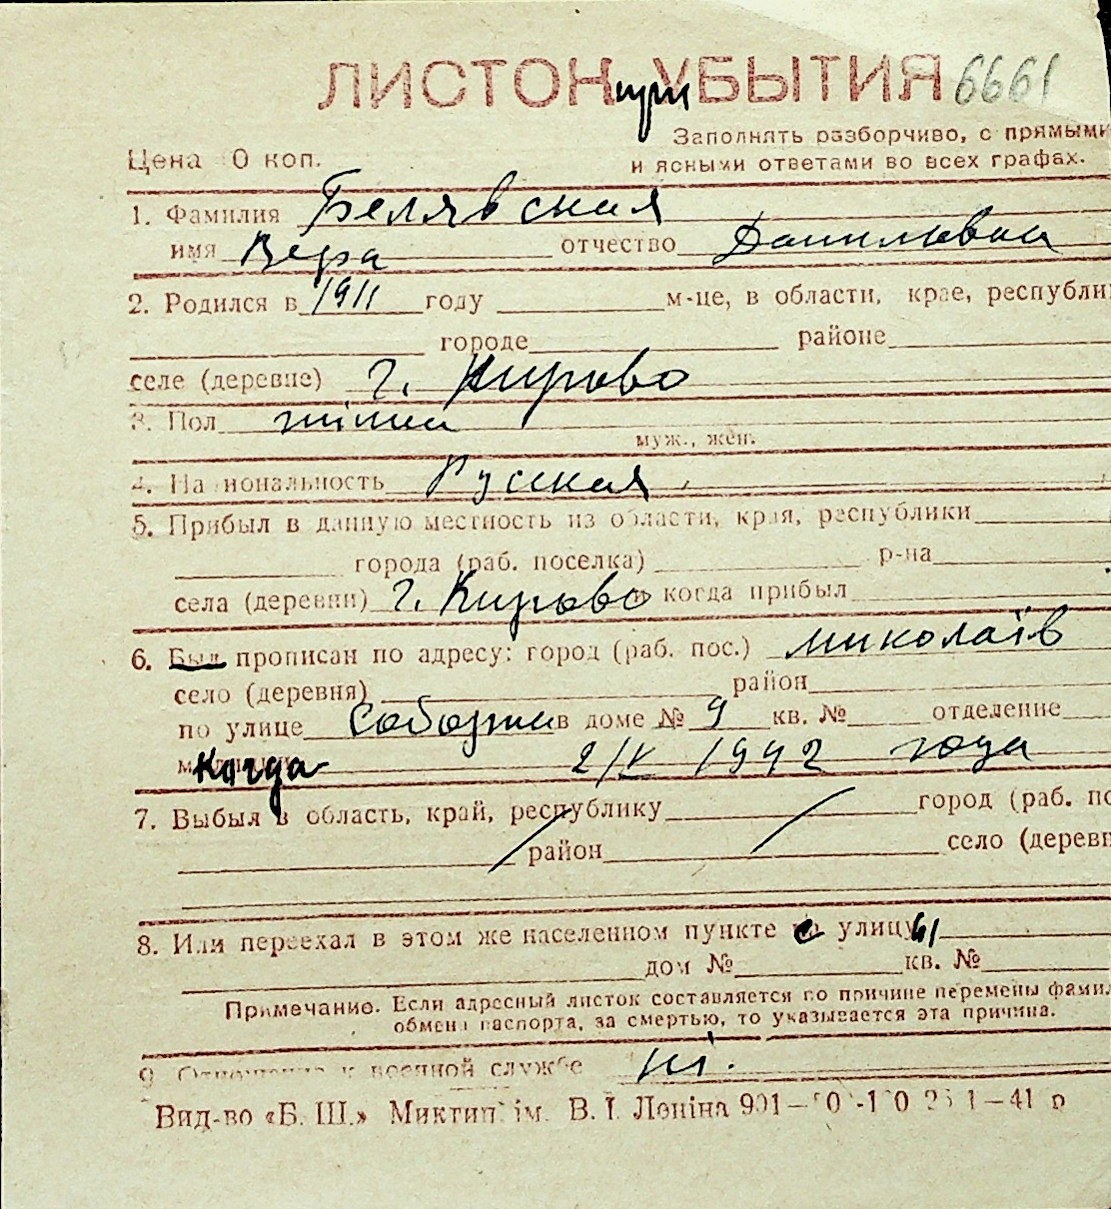 ЛИСТОК при УБЫТИЯ 6661
Заполнять разборчиво, с прямыми
Цена 0 коп. и ясными ответами во всех графах.
1. Фамилия Белявская
имя Вера отчество Даниловна
2. Родился в 1911 году м-це, в области, крае, республи
городе районе
селе (деревне) г. Кирово
3. Пол жінка
муж., жен.
4. Национальность Русская
5. Прибыл в данную местность из области, края, республики
города (раб. поселка) р-на
села (деревни) г. Кирово когда прибыл
6. Был прописан по адресу: город (раб. пос.) Миколаїв
село (деревня) район
по улице в доме № 9 кв. № отделение
Когда 2/V 1942 года
7. Выбыл в область, край, республику город (раб. по
район село (деревн
8. Или переехал в этом же населенном пункте с улицы
дом № кв. №
Примечание. Если адресный листок составляется по причине перемены фамил
обмена паспорта, за смертью, то указывается эта причина.
9. Отношение к военной службе ні.
Вид-во «Б. Ш.» Миктип. ім. В. І. Леніна